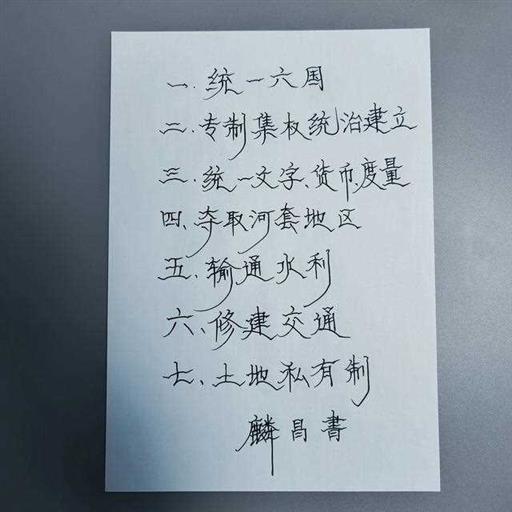 一.统一六国
二.专制集权统治建立
三.统一文字、货币、度量
四、夺取河套地区
五、输通水利
六、修建交通
七、土地私有制
麟昌書